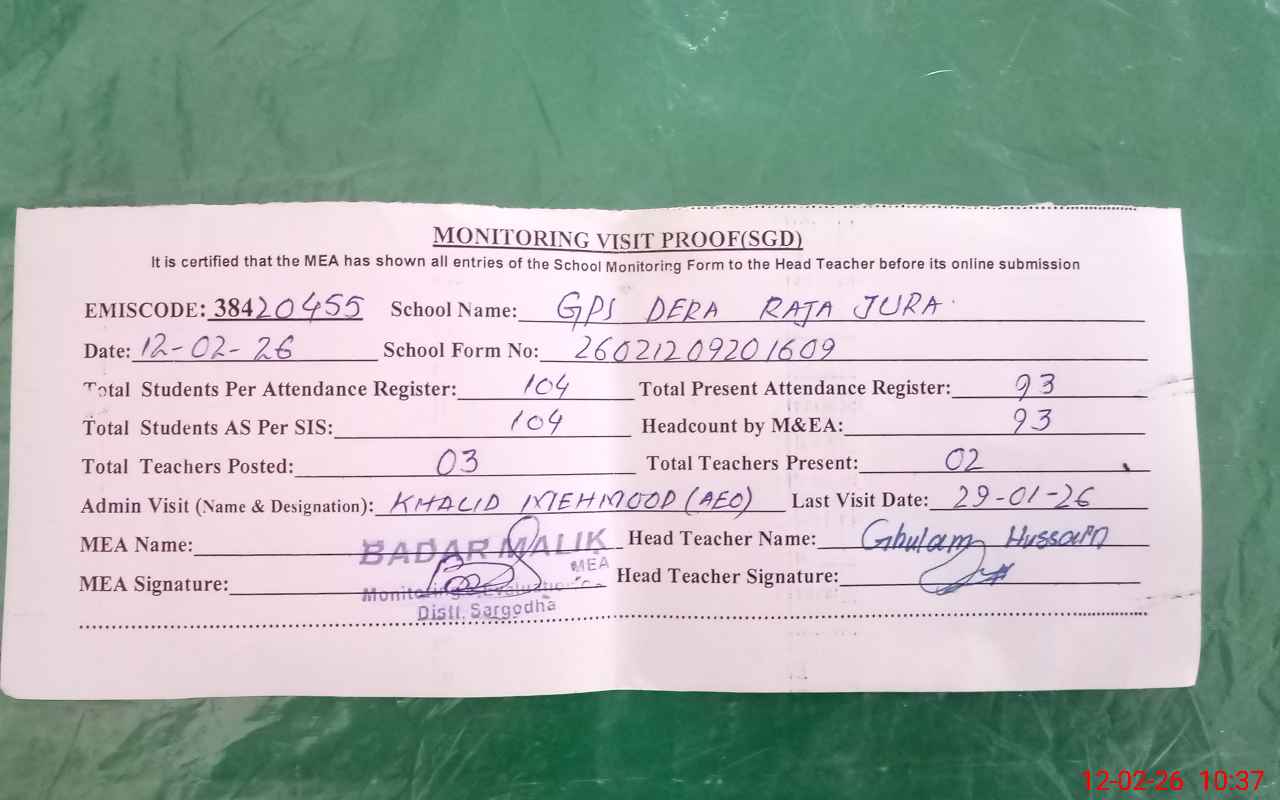 MONITORING VISIT PROOF(SGD)
It is certified that the MEA has shown all entries of the School Monitoring Form to the Head Teacher before its online submission
EMISCODE: 38420455 School Name: GPS DERA RAJA JURA
Date: 12-02-26 School Form No: 26021209201609
Total Students Per Attendance Register: 104 Total Present Attendance Register: 93
Total Students AS Per SIS: 104 Headcount by M&EA: 93
Total Teachers Posted: 03 Total Teachers Present: 02
Admin Visit (Name & Designation): KHALID MEHMOOD (AEO) Last Visit Date: 29-01-26
MEA Name: BADAR MALIK Head Teacher Name: Ghulam Hussain
MEA
MEA Signature: Head Teacher Signature:
Distt. Sargodha
12-02-26 10:37